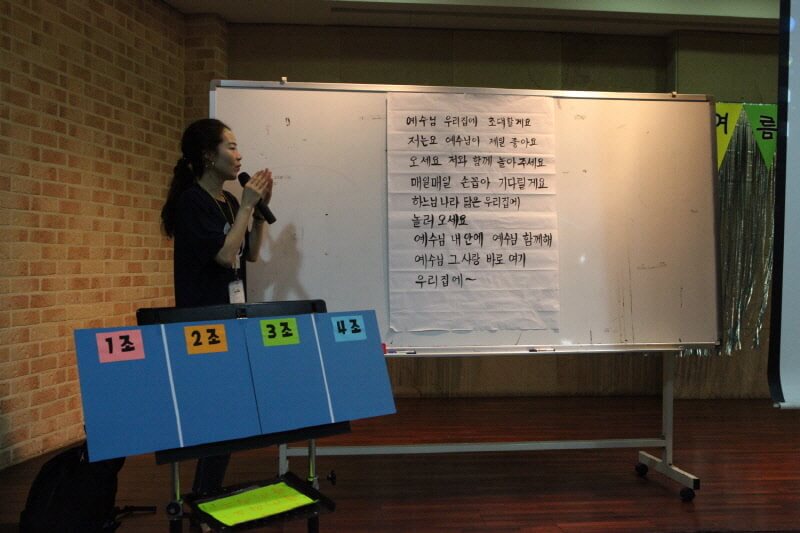 예수님 우리집에 초대할게요
저는요 예수님이 제일 좋아요
오세요 저와 함께 놀아주세요
매일매일 손꼽아 기다릴게요
하느님 나라 닮은 우리집에
놀러 오세요
예수님 내 안에 예수님 함께해
예수님 그 사랑 바로 여기
우리집에~
여름
1조
2조
3조
4조